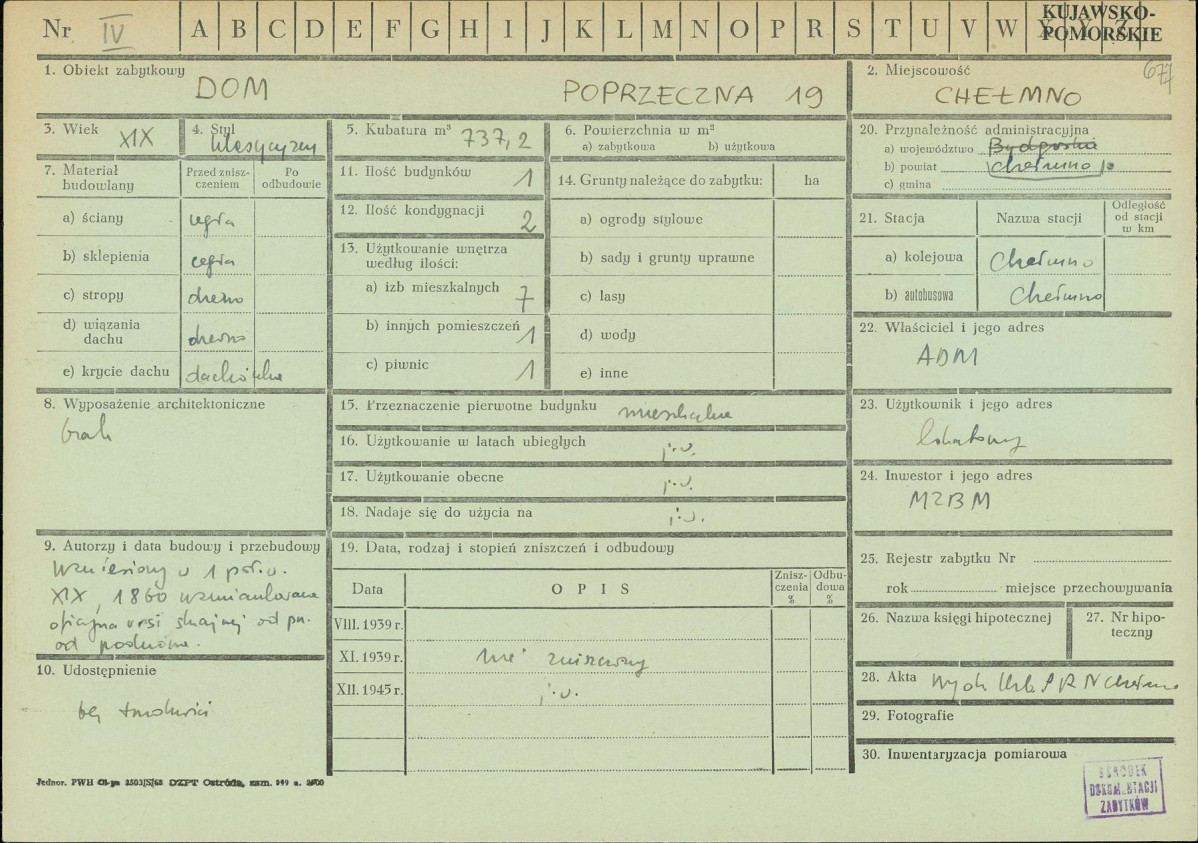 Nr IV A B C D E F G H I J K L M N O P R S T U V W X Y Z
KUJAWSKO-
POMORSKIE
677
1. Obiekt zabytkowy
DOM POPRZECZNA 19
2. Miejscowość
CHEŁMNO
3. Wiek
XIX
4. Styl
klasycyzm
5. Kubatura m³ 737,2
6. Powierzchnia w m²
a) zabytkowa b) użytkowa
7. Materiał
budowlany
Przed znisz-
czeniem
Po
odbudowie
a) ściany cegła
b) sklepienia cegła
c) stropy drewno
d) wiązania
dachu drewno
e) krycie dachu dachówka
8. Wyposażenie architektoniczne
brak
9. Autorzy i data budowy i przebudowy
Wzniesiony w 1 poł. w.
XIX, 1860 wzmiankowana
oficyna
od pn.
od podwórza.
10. Udostępnienie
bez trudności
11. Ilość budynków 1
12. Ilość kondygnacji 2
13. Użytkowanie wnętrza
według ilości:
a) izb mieszkalnych 7
b) innych pomieszczeń 1
c) piwnic 1
14. Grunty należące do zabytku: ha
a) ogrody stylowe
b) sady i grunty uprawne
c) lasy
d) wody
e) inne
15. Przeznaczenie pierwotne budynku mieszkalne
16. Użytkowanie w latach ubiegłych j.w.
17. Użytkowanie obecne j.w.
18. Nadaje się do użycia na j.w.
19. Data, rodzaj i stopień zniszczeń i odbudowy
Data O P I S
Znisz-
czenia
%
Odbu-
dowa
%
VIII. 1939 r.
XI. 1939 r. nie zniszczony
XII. 1945 r. j.w.
20. Przynależność administracyjna
a) województwo Bydgoskie
b) powiat Chełmno
c) gmina
21. Stacja Nazwa stacji
Odległość
od stacji
w km
a) kolejowa Chełmno
b) autobusowa Chełmno
22. Właściciel i jego adres
ADM
23. Użytkownik i jego adres
lokatorzy
24. Inwestor i jego adres
MZBM
25. Rejestr zabytku Nr
rok miejsce przechowywania
26. Nazwa księgi hipotecznej
27. Nr hipo-
teczny
28. Akta Wydz. Kult. PRN Chełmno
29. Fotografie
30. Inwentaryzacja pomiarowa
OŚRODEK
DOKUMENTACJI
ZABYTKÓW
Jednor. PWH 2503[S]68 DZPT Ostróda, zam.